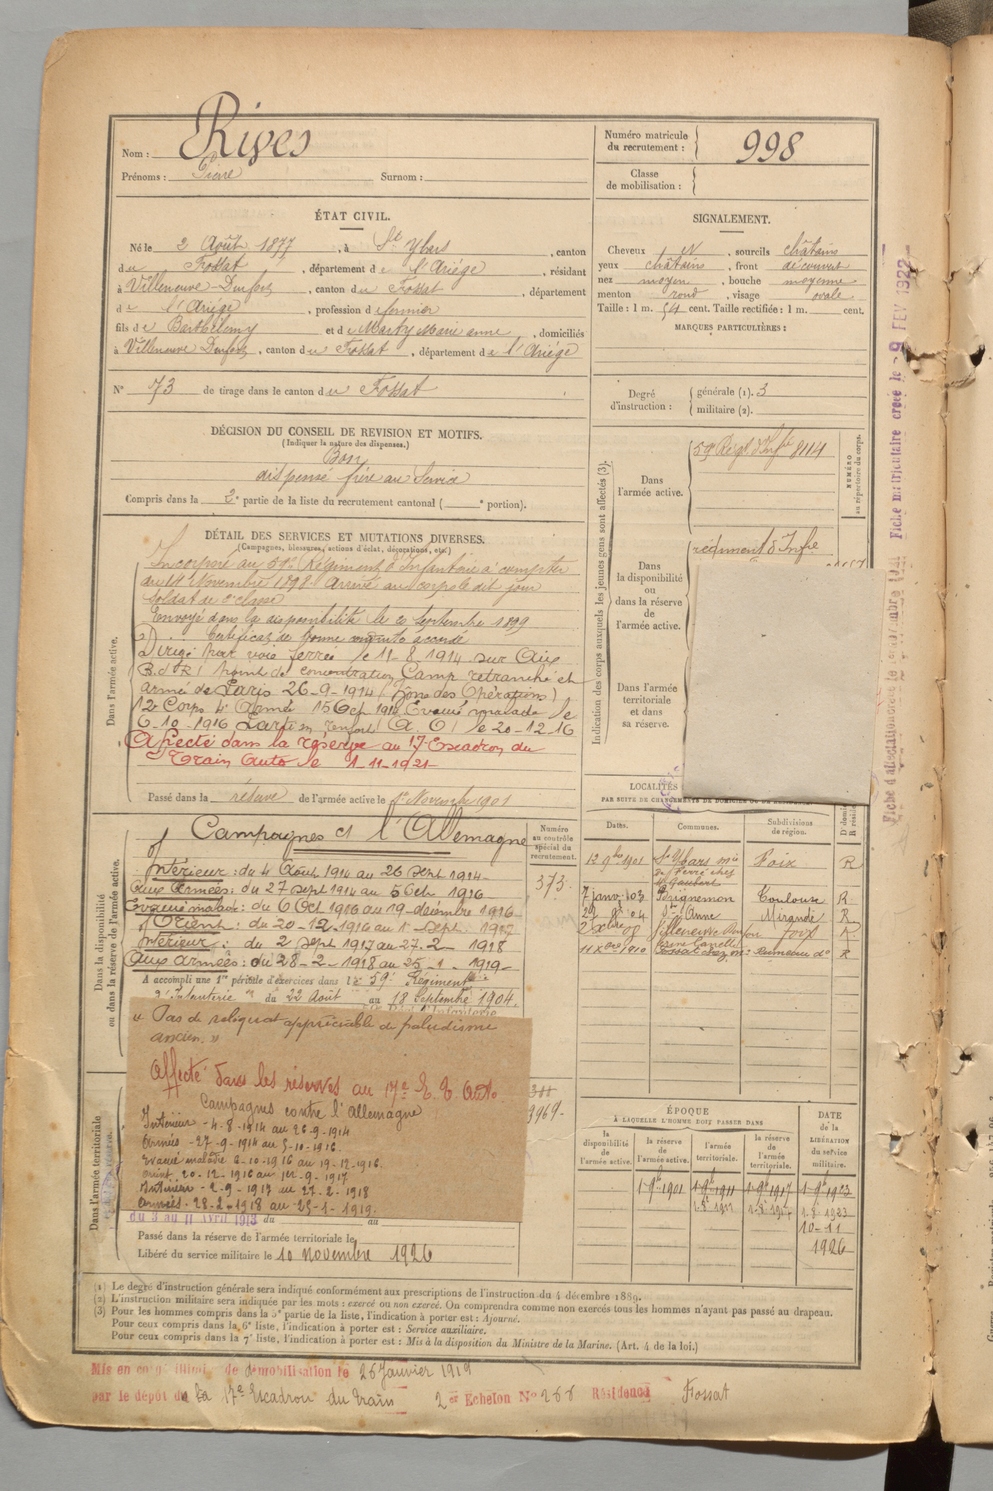 Nom : Rives
Prénoms : Pierre Surnom :
Numéro matricule
du recrutement : 998
Classe
de mobilisation :
ÉTAT CIVIL.
Né le 2 Août 1877, à St Ybars, canton
du Fossat, département de l'Ariège, résidant
à Villeneuve-Durfort, canton du Fossat, département
de l'Ariège, profession de fermier
fils de Barthélemy et de Marty Marie anne, domiciliés
à Villeneuve Durfort, canton du Fossat, département de l'Ariège
N° 73 de tirage dans le canton du Fossat
SIGNALEMENT.
Cheveux N, sourcils châtains
yeux châtains, front découvert
nez moyen, bouche moyenne
menton rond, visage ovale
Taille : 1 m. 54 cent. Taille rectifiée : 1 m. cent.
MARQUES PARTICULIÈRES :
Degré
d'instruction :
générale (1). 3
militaire (2).
DÉCISION DU CONSEIL DE REVISION ET MOTIFS.
(Indiquer la nature des dispenses.)
Bon
dispensé frère au Service
Compris dans la 2e partie de la liste du recrutement cantonal ( e portion).
DÉTAIL DES SERVICES ET MUTATIONS DIVERSES.
(Campagnes, blessures, actions d'éclat, décorations, etc.)
Dans l'armée active.
Incorporé au 59e Régiment d'Infanterie à compter
du 14 Novembre 1898. Arrivé au corps le dit jour
soldat de 2e classe
Envoyé dans la disponibilité le 20 Septembre 1899
Certificat de bonne conduite accordé
Dirigé par voie ferrée le 11-8-1914 sur Aix
B.d.R. point de concentration Camp retranché et
armée de Paris 26-9-1914 (Zone des Opérations)
12e Corps 4e Armée 15 Oct 1916 Evacué malade le
6-10-1916 Parti en renfort (A. O) le 20-12-16
Affecté dans la réserve au 17 Escadron du
Train Auto le 1-11-1921
Passé dans la réserve de l'armée active le 1er Novembre 1901
Indication des corps auxquels les jeunes gens sont affectés (3).
Dans
l'armée active.
59 Régt d'Infie 8114
NUMÉRO
au répertoire du corps.
Dans
la disponibilité
ou
dans la réserve
de
l'armée active.
régiment d'Infie
Dans
l'armée
territoriale
et dans
sa réserve.
LOCALITÉS
PAR SUITE DE CHANGEMENTS DE DOMICILE OU DE RÉSIDENCE
Dates. Communes. Subdivisions
de région.
12 9bre 1901 St Ybars Foix R
7 janv. 03 Toulouse R
Ste Anne Mirande R
Villeneuve Foix R
11 Xbre 1910 Fossat R
Numéro
au contrôle
spécial du
recrutement.
373
Dans la disponibilité
ou dans la réserve de l'armée active.
Campagnes ct l'Allemagne
Intérieur : du 4 Août 1914 au 26 Sept 1914
aux Armées : du 27 Sept 1914 au 5 Oct 1916
Evacué malade : du 6 Oct 1916 au 19 décembre 1916
Orient : du 20-12-1916 au 1er Sept 1917
Intérieur : du 2 Sept 1917 au 27-2-1918
Aux armées : du 28-2-1918 au 25-1-1919
A accompli une 1re période d'exercices dans le 59e Régiment
d'Infanterie du 22 Août au 18 Septembre 1904.
« Pas de reliquat appréciable de paludisme
ancien. »
Affecté dans les réserves au 17e E. T. Auto
Campagnes contre l'Allemagne
Intérieur - 4-8-1914 au 26-9-1914
Armées - 27-9-1914 au 5-10-1916.
Evacué malade 6-10-1916 au 19-12-1916.
Orient 20-12-1916 au 1er-9-1917
Intérieur - 2-9-1917 au 27-2-1918
Armées - 28-2-1918 au 25-1-1919.
Dans l'armée territoriale
du 3 au 11 Avril 1913 du au
Passé dans la réserve de l'armée territoriale le
Libéré du service militaire le 10 novembre 1926
ÉPOQUE
À LAQUELLE L'HOMME DOIT PASSER DANS
DATE
de la
LIBÉRATION
du service
militaire.
la
disponibilité
de
l'armée active.
la réserve
de
l'armée active.
l'armée
territoriale.
la réserve
de
l'armée
territoriale.
1-9bre 1901 1-9bre 1911 1-9bre 1917 1-9bre 1923
10-11
1926
(1) Le degré d'instruction générale sera indiqué conformément aux prescriptions de l'instruction du 4 décembre 1889.
(2) L'instruction militaire sera indiquée par les mots : exercé ou non exercé. On comprendra comme non exercés tous les hommes n'ayant pas passé au drapeau.
(3) Pour les hommes compris dans la 5e partie de la liste, l'indication à porter est : Ajourné.
Pour ceux compris dans la 6e liste, l'indication à porter est : Service auxiliaire.
Pour ceux compris dans la 7e liste, l'indication à porter est : Mis à la disposition du Ministre de la Marine. (Art. 4 de la loi.)
Mis en congé illimité de démobilisation le 26 Janvier 1919
par le dépôt du 17e Escadron du Train 2er Echelon N° 266 Résidence Fossat
Fiche matriculaire créée le 9 FEV 1922